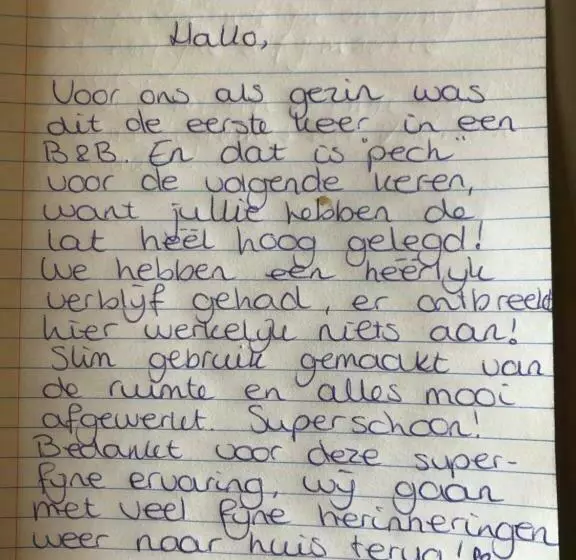 Hallo,
Voor ons als gezin was
dit de eerste keer in een
B&B. En dat is "pech"
voor de volgende keren,
want jullie hebben de
lat héél hoog gelegd!
We hebben een heerlijk
verblijf gehad, er ontbreekt
hier werkelijk niets aan!
Slim gebruik gemaakt van
de ruimte en alles mooi
afgewerkt. Superschoon!
Bedankt voor deze super-
fijne ervaring, wij gaan
met veel fijne herinneringen
weer naar huis terug!